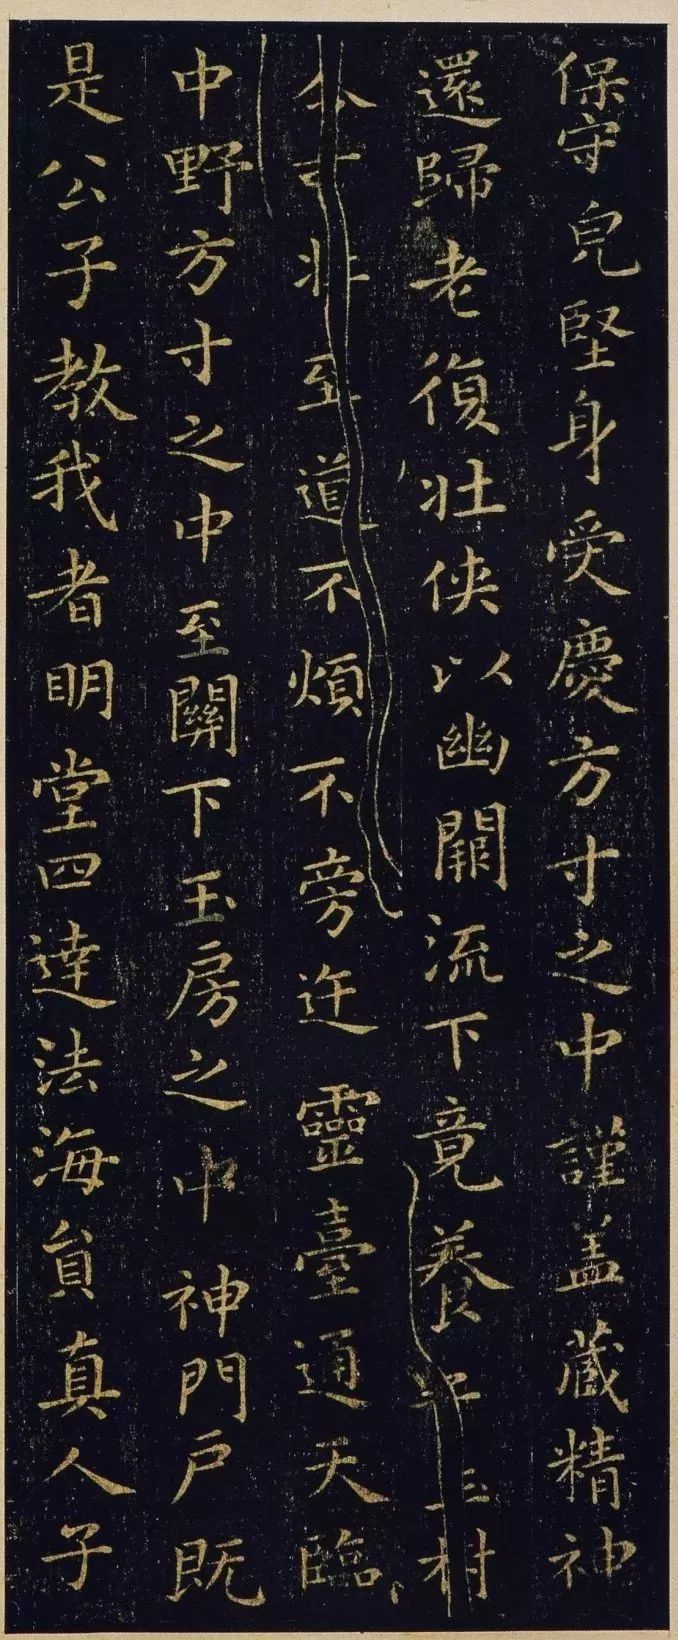 保守皃堅身受慶方寸之中謹盖藏精神
還歸老復壯俠以幽闕流下竟養
至道不煩不旁迕靈臺通天臨
中野方寸之中至關下玉房之中神門戶既
是公子教我者眀堂四達法海員真人子